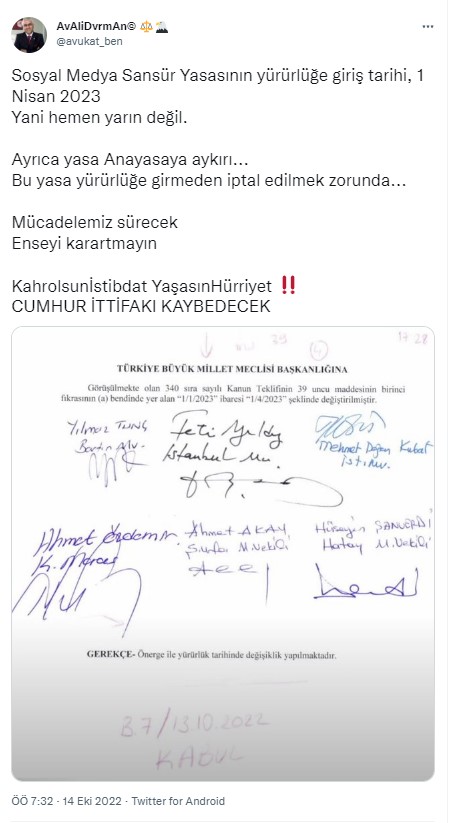 AvAliDvrmAn©
@avukat_ben
Sosyal Medya Sansür Yasasının yürürlüğe giriş tarihi, 1
Nisan 2023
Yani hemen yarın değil.
Ayrıca yasa Anayasaya aykırı...
Bu yasa yürürlüğe girmeden iptal edilmek zorunda...
Mücadelemiz sürecek
Enseyi karartmayın
Kahrolsunİstibdat YaşasınHürriyet ‼️
CUMHUR İTTİFAKI KAYBEDECEK
39
4
17 28
TÜRKİYE BÜYÜK MİLLET MECLİSİ BAŞKANLIĞINA
Görüşülmekte olan 340 sıra sayılı Kanun Teklifinin 39 uncu maddesinin birinci
fıkrasının (a) bendinde yer alan “1/1/2023” ibaresi “1/4/2023” şeklinde değiştirilmiştir.
Yılmaz TUNÇ
Bartın Mv.
Feti Yıldız
İstanbul Mv.
Mehmet Doğan Kubat
İst. Mv.
Ahmet Özdemir
K. Maraş
Ahmet AKAY
Ş.urfa M.Vekili
Hüseyin ŞANVERDİ
Hatay M.Vekili
GEREKÇE- Önerge ile yürürlük tarihinde değişiklik yapılmaktadır.
3.7/13.10.2022
KABUL
ÖÖ 7:32 · 14 Eki 2022 · Twitter for Android